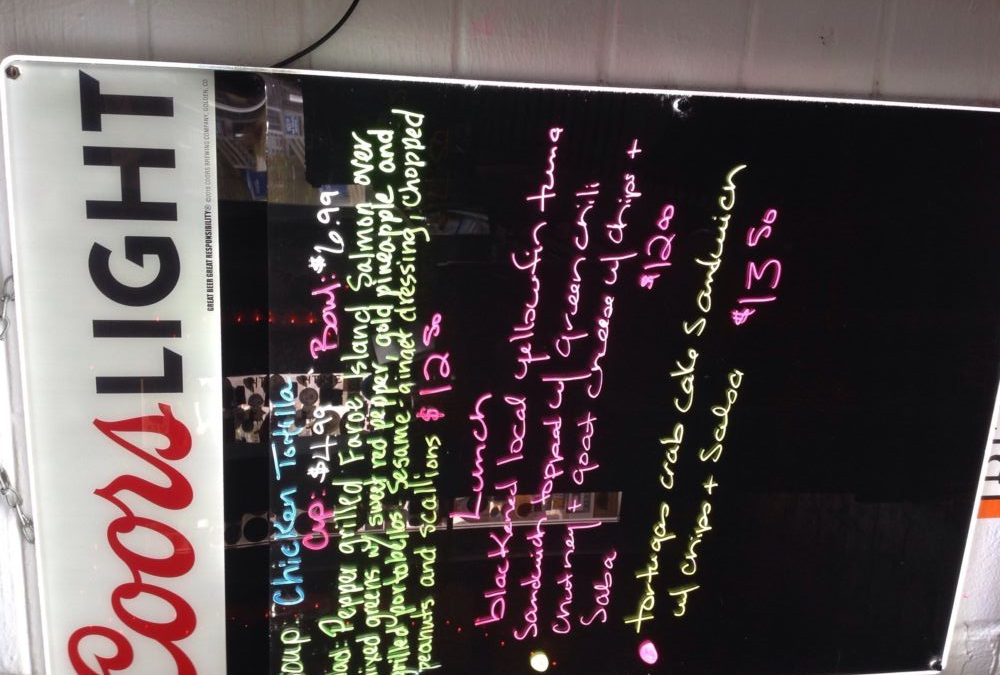 Coors LIGHT
GREAT BEER GREAT RESPONSIBILITY® ©2018 COORS BREWING COMPANY, GOLDEN, CO
oup: Chicken Tortilla
Cup: $4.99 Bowl: $6.99
lad: Pepper grilled Faroe Island Salmon over
mixed greens w/ sweet red pepper, gold pineapple and
grilled portabellos. Sesame-ginger dressing, chopped
peanuts and scallions $12 50
Lunch
blackened local yellowfin tuna
Sandwich topped w/ green chili
chutney + goat cheese w/ chips +
Salsa
$12 00
tortugas crab cake Sandwich
w/ chips + Salsa
$13 50